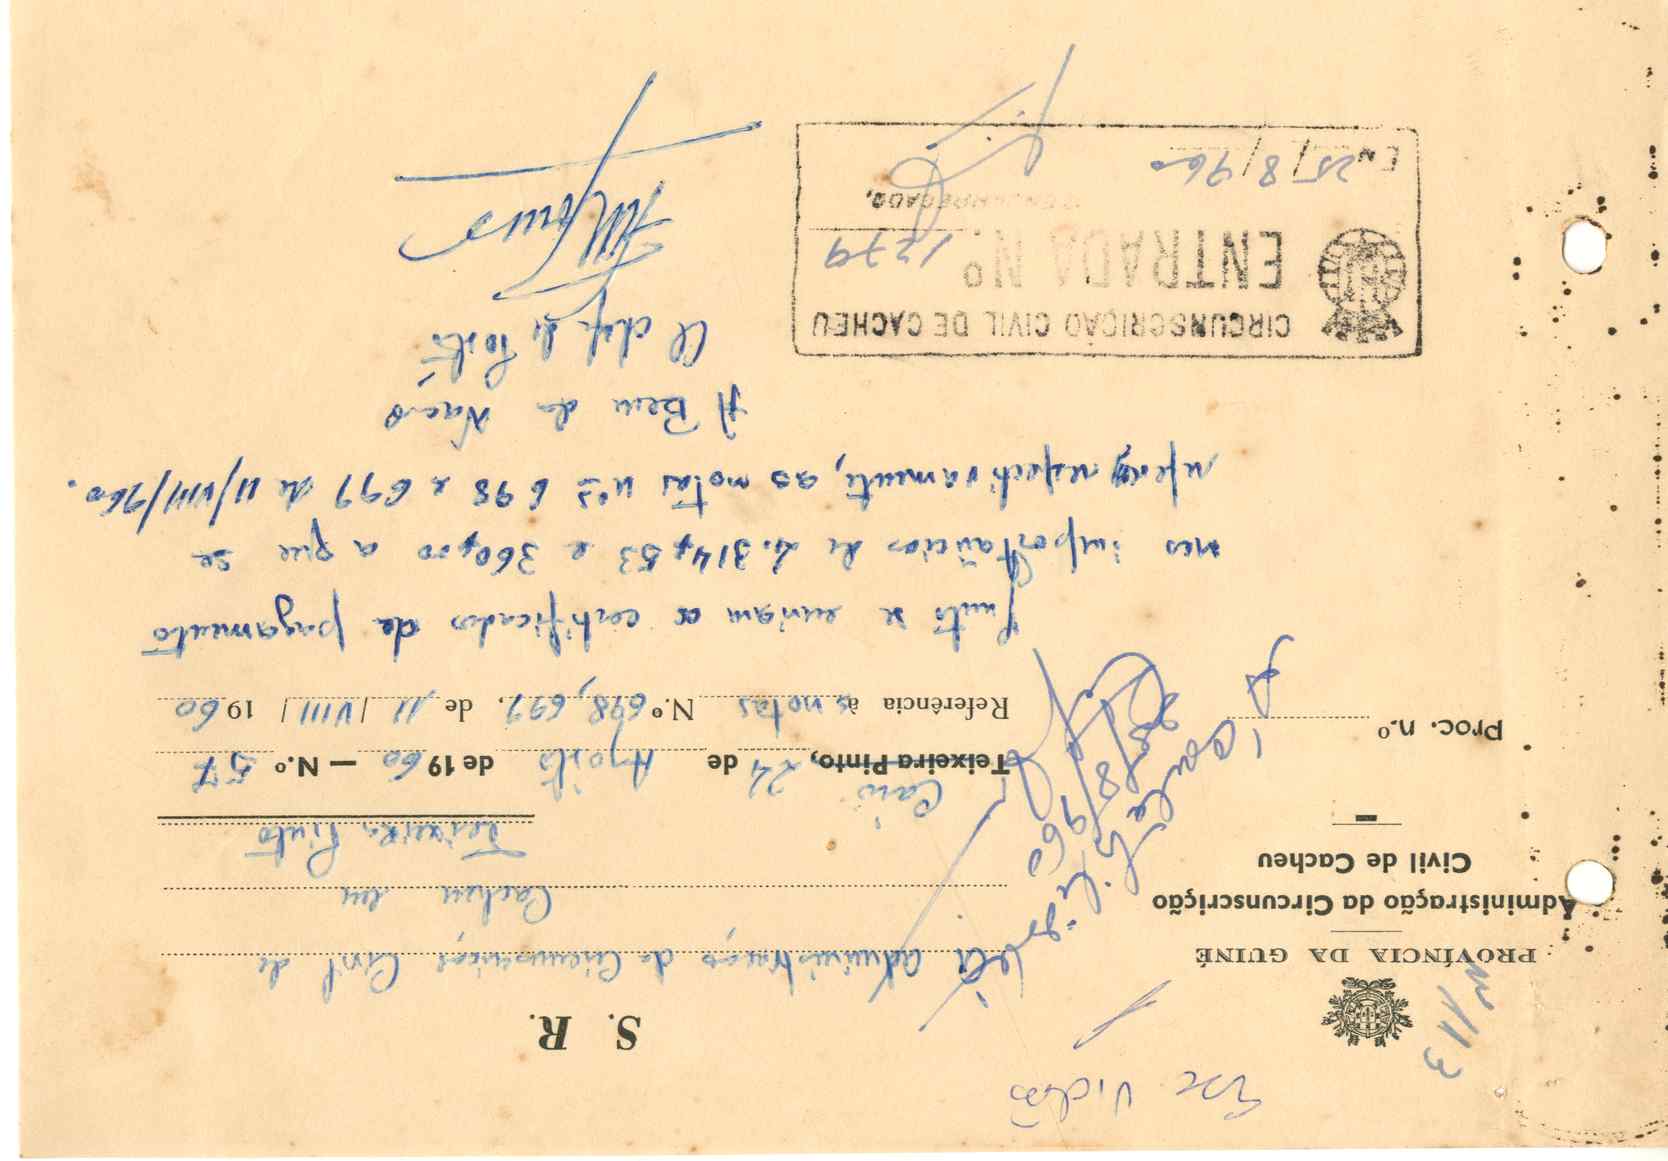 S. R.
PROVÍNCIA DA GUINÉ
Administração da Circunscrição
Civil de Cacheu
Proc. n.º
Nº 113
administração da Circunscrição Civil de
Cacheu em
Teixeira Pinto
Caió
Teixeira Pinto, 24 de Agosto de 1960 — N.º 57
Referência às notas N.º 698, 699, de 11/VIII/1960
Junto se enviam os certificados de pagamento
nas importâncias de 2.314,53 e 360,00 a que se
referem respectivamente, as notas nºs 698 e 699 de 11/VIII/960.
A Bem da Nação
O chefe de Posto
25/8/960
CIRCUNSCRIÇÃO CIVIL DE CACHEU
ENTRADA N.º 1279
EN 25/8/960
ENCARREGADO,